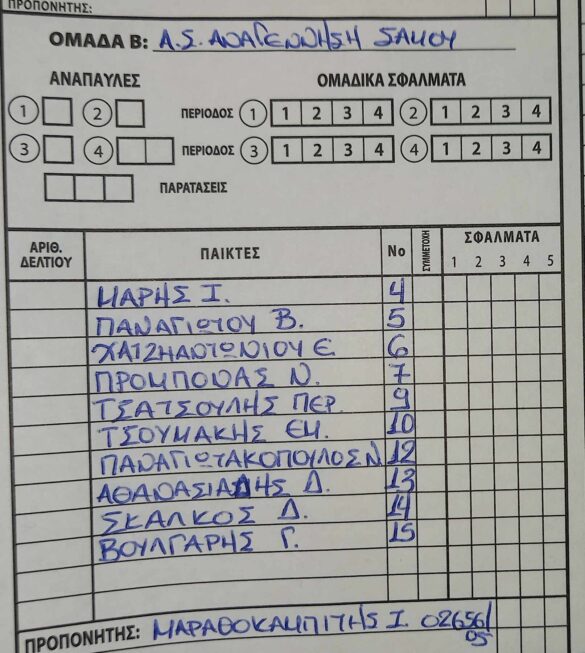 ΠΡΟΠΟΝΗΤΗΣ:
ΟΜΑΔΑ Β: Α.Σ. ΑΝΑΓΕΝΝΗΣΗ ΣΑΜΟΥ
ΑΝΑΠΑΥΛΕΣ ΟΜΑΔΙΚΑ ΣΦΑΛΜΑΤΑ
1 2 ΠΕΡΙΟΔΟΣ 1 1 2 3 4 2 1 2 3 4
3 4 ΠΕΡΙΟΔΟΣ 3 1 2 3 4 4 1 2 3 4
ΠΑΡΑΤΑΣΕΙΣ
ΑΡΙΘ. ΔΕΛΤΙΟΥ ΠΑΙΚΤΕΣ Νο ΣΥΜΜΕΤΟΧΗ ΣΦΑΛΜΑΤΑ
1 2 3 4 5
ΜΑΡΗΣ Ι. 4
ΠΑΝΑΓΙΩΤΟΥ Β. 5
ΧΑΤΖΗΑΝΤΩΝΙΟΥ Ε 6
ΠΡΟΜΠΟΝΑΣ Ν. 7
ΤΣΑΤΣΟΥΛΗΣ ΠΕΡ. 9
ΤΣΟΥΜΑΚΗΣ ΕΜ. 10
ΠΑΝΑΓΙΩΤΑΚΟΠΟΥΛΟΣ Ν. 12
ΑΘΑΝΑΣΙΑΔΗΣ Δ. 13
ΣΚΑΛΚΟΣ Δ. 14
ΒΟΥΛΓΑΡΗΣ Γ. 15
ΠΡΟΠΟΝΗΤΗΣ: ΜΑΡΑΘΟΚΑΜΠΙΤΗΣ Ι. 026561/05